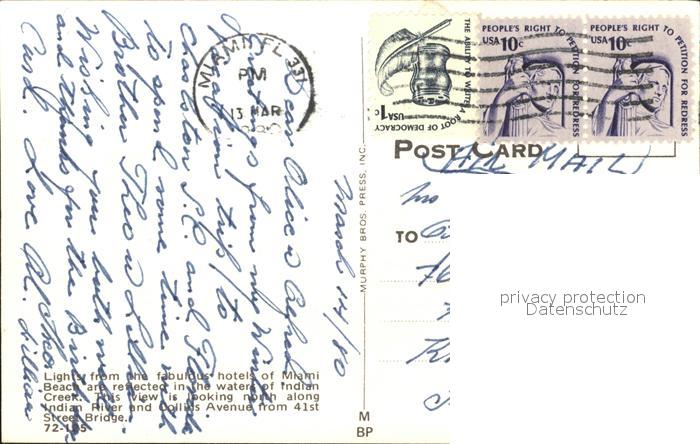 March 14/80
Dear Alice &
Greetings from my Winter
Vacation trip to
Charleston S.C. and Florida
to spend some time with
Brother Theo & Lillian.
Wishing you both well
and thanks for the Birthday
Card. Love
Theo
Lillian
MIAMI, FL 331
PM
13 MAR
THE ABILITY TO WRITE
ROOT OF DEMOCRACY
USA 1c
PEOPLE'S RIGHT TO PETITION FOR REDRESS
USA 10c
PEOPLE'S RIGHT TO PETITION FOR REDRESS
USA 10c
POST CARD
AIR MAIL
TO
MURPHY BROS. PRESS, INC.
M
BP
privacy protection
Datenschutz
Lights from the fabulous hotels of Miami
Beach are reflected in the waters of Indian
Creek. This view is looking north along
Indian River and Collins Avenue from 41st
Street Bridge.